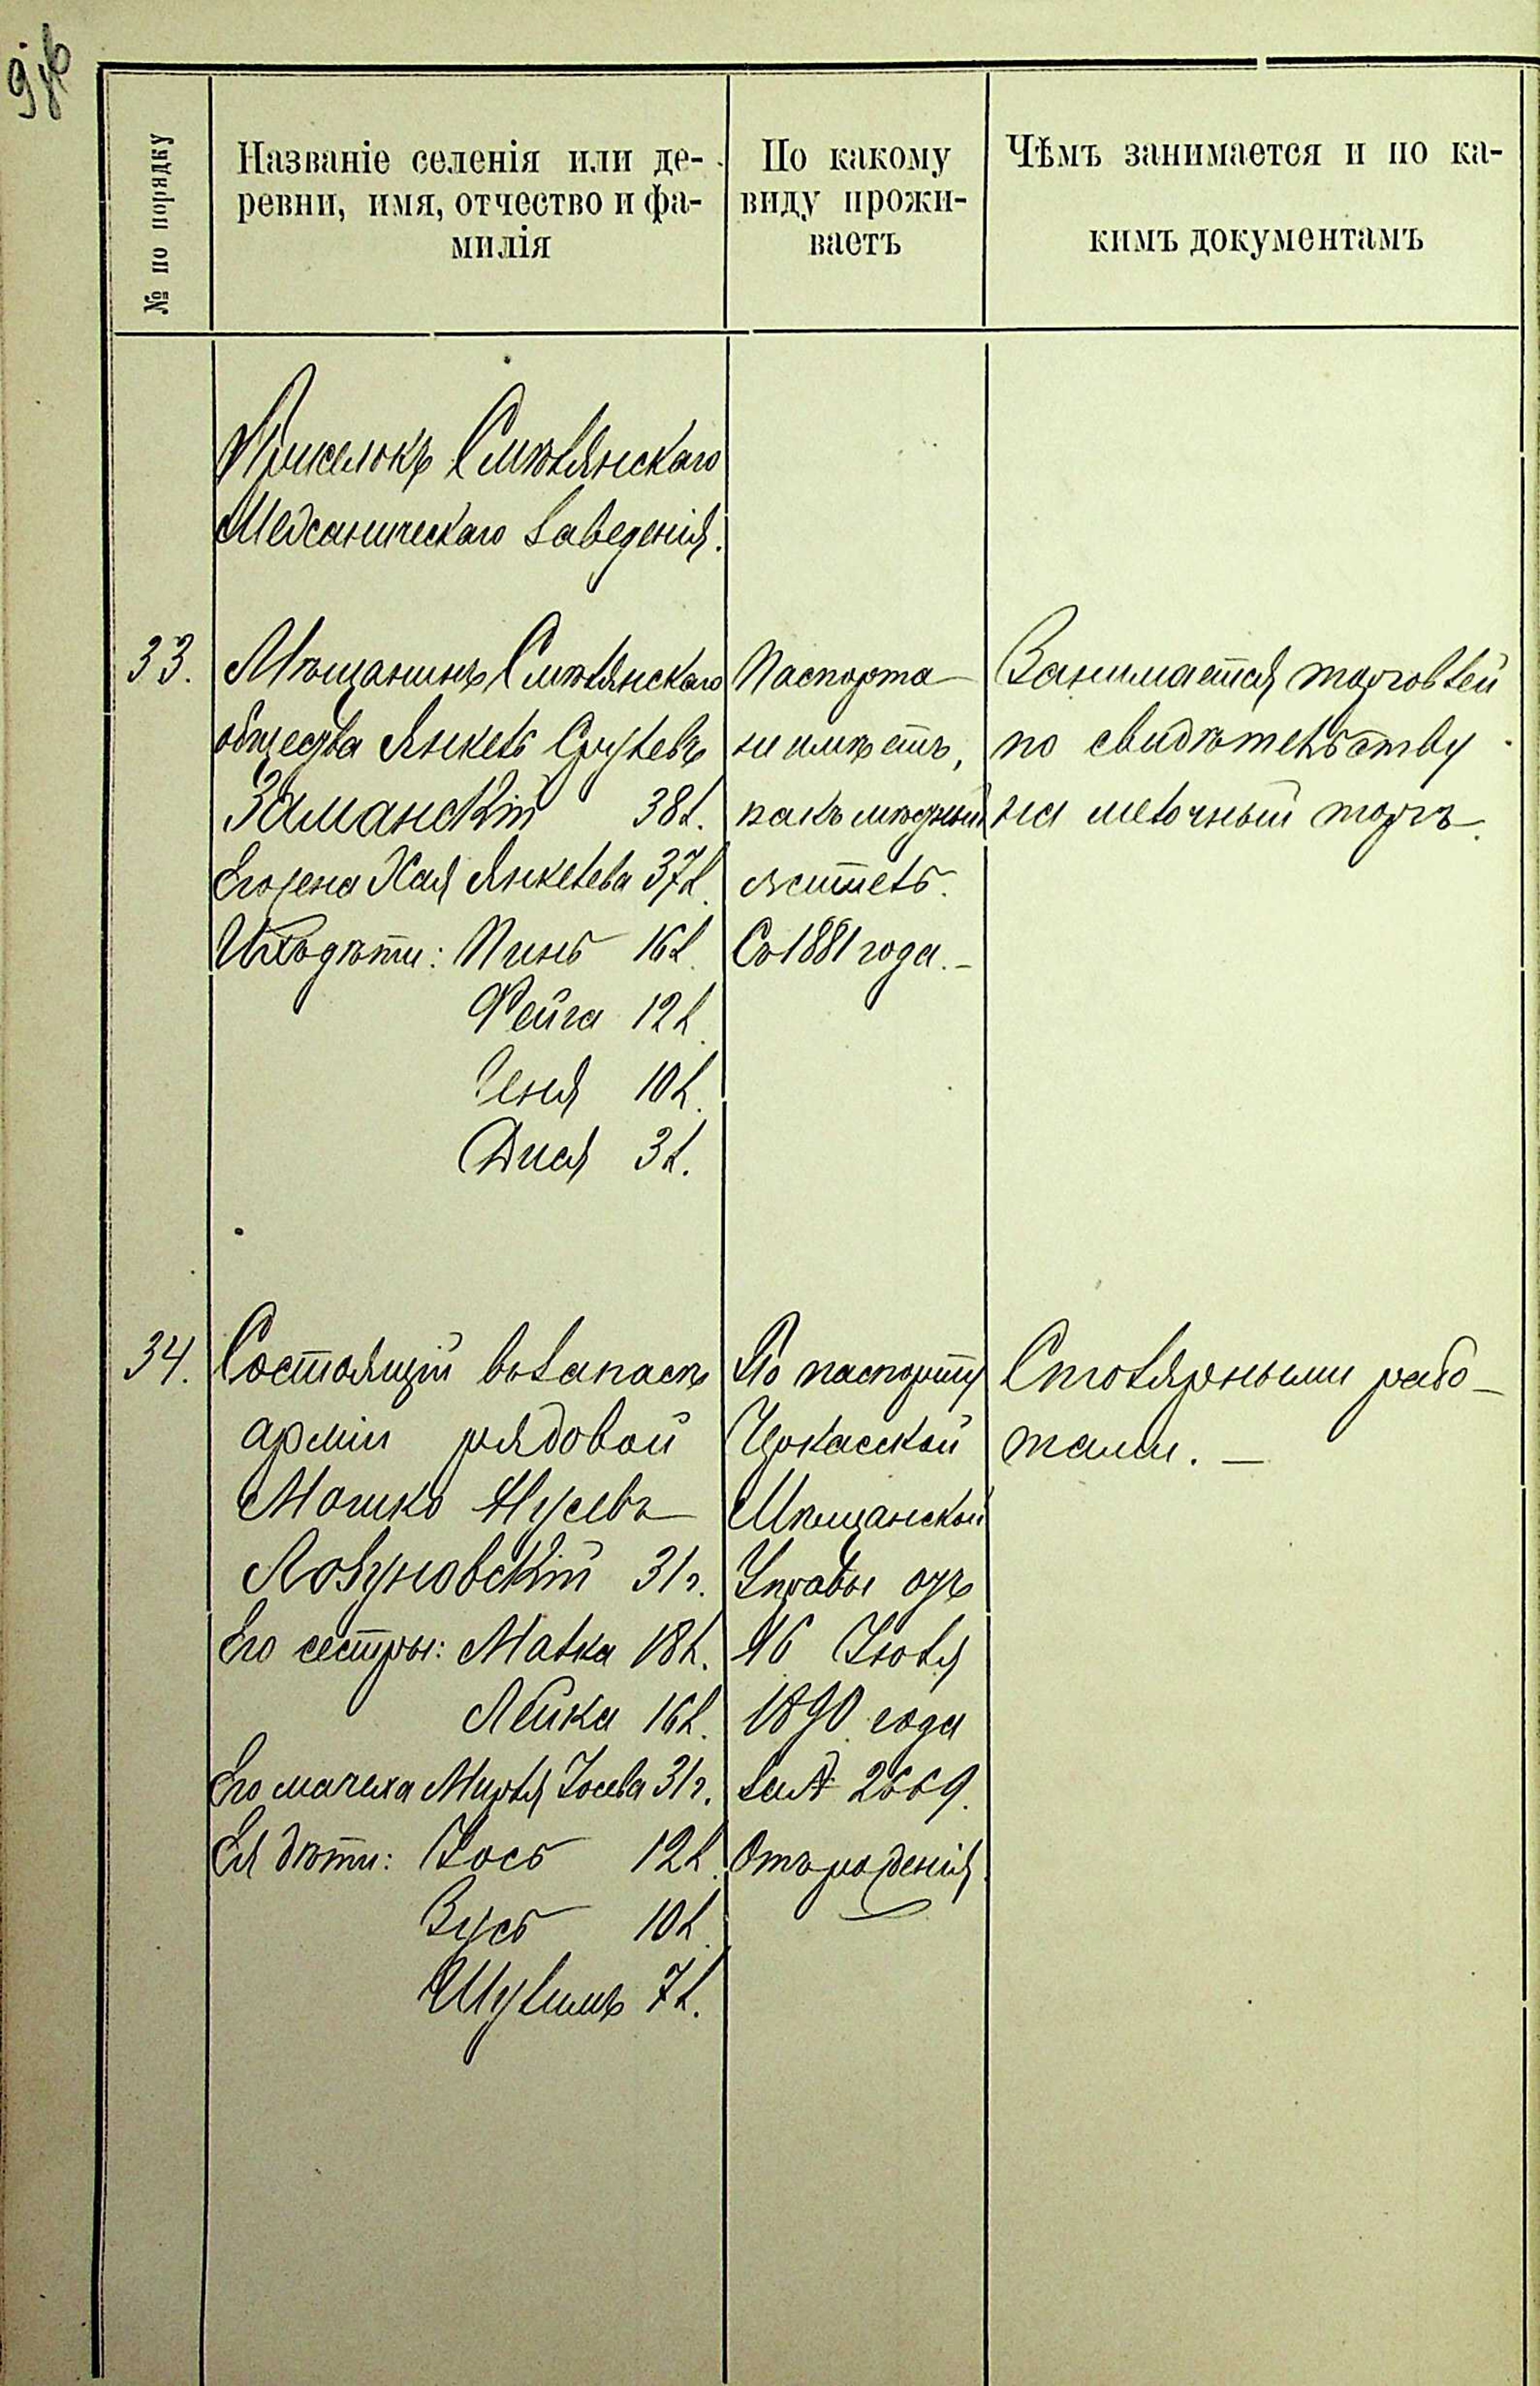 № по порядку
Названіе селенія или де-
ревни, имя, отчество и фа-
милія
По какому
виду прожи-
ваетъ
Чѣмъ занимается и по ка-
кимъ документамъ
Приселокъ Смѣлянскаго
Механическаго заведенія.
33.
Мѣщанинъ Смѣлянскаго
общества Янкель Срулевъ
Заманскій 38 л.
Его жена Хая Янкелева 37 л.
Ихъ дѣти: Пинь 16 л.
Фейга 12 л.
Геня 10 л.
Двся 3 л.
Паспорта
не имѣетъ,
какъ мѣстный
житель.
Съ 1881 года. –
Занимается торговлей
по свидѣтельству
на мелочный торгъ.
34.
Состоящій въ запасѣ
арміи рядовой
Мошко Нусевъ
Лозуновскій 31 г.
Его сестры: Малка 18 л.
Лейка 16 л.
Его мачеха Мирля Іосева 31 г.
Ея дѣти: Іось 12 л.
Зусь 10 л.
Шулимъ 7 л.
По паспорту
Черкасской
Мѣщанской
Управы отъ
16 Іюля
1890 года
за № 2669.
Отъ рожденія.
Столярными рабо–
тами. –